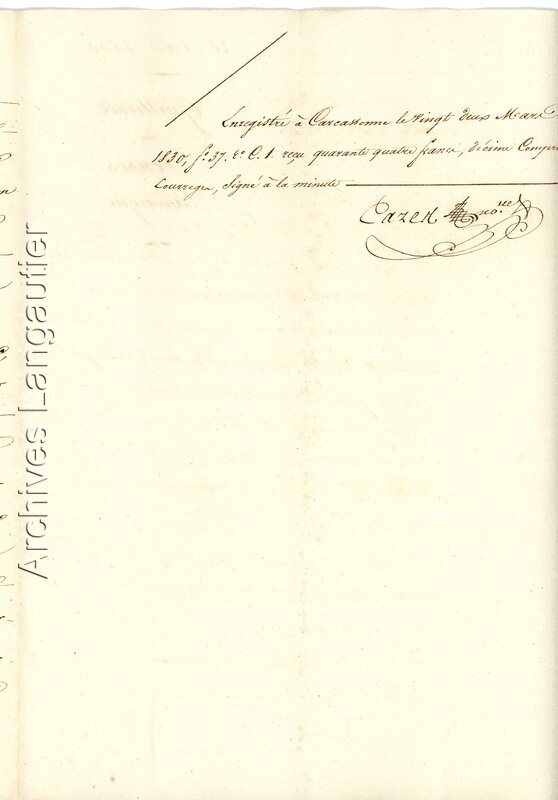 Enregistré à Carcassonne le vingt deux Mars
1830, f.º 37. Vº C. 1. reçu quarante quatre francs, décime Compris
Courrege, signé à la minute
Cazen no.re
Archives Langautier